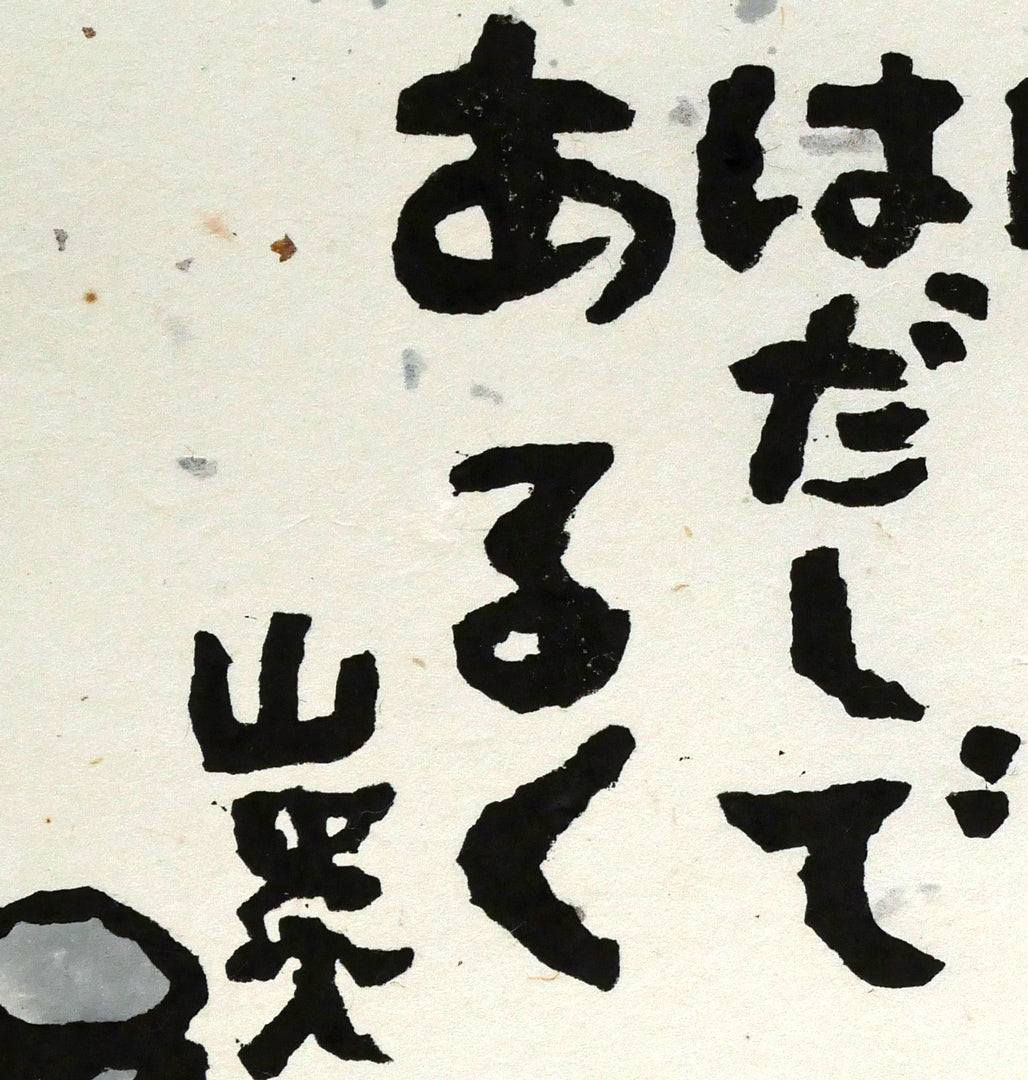 はだしで
あるく
山